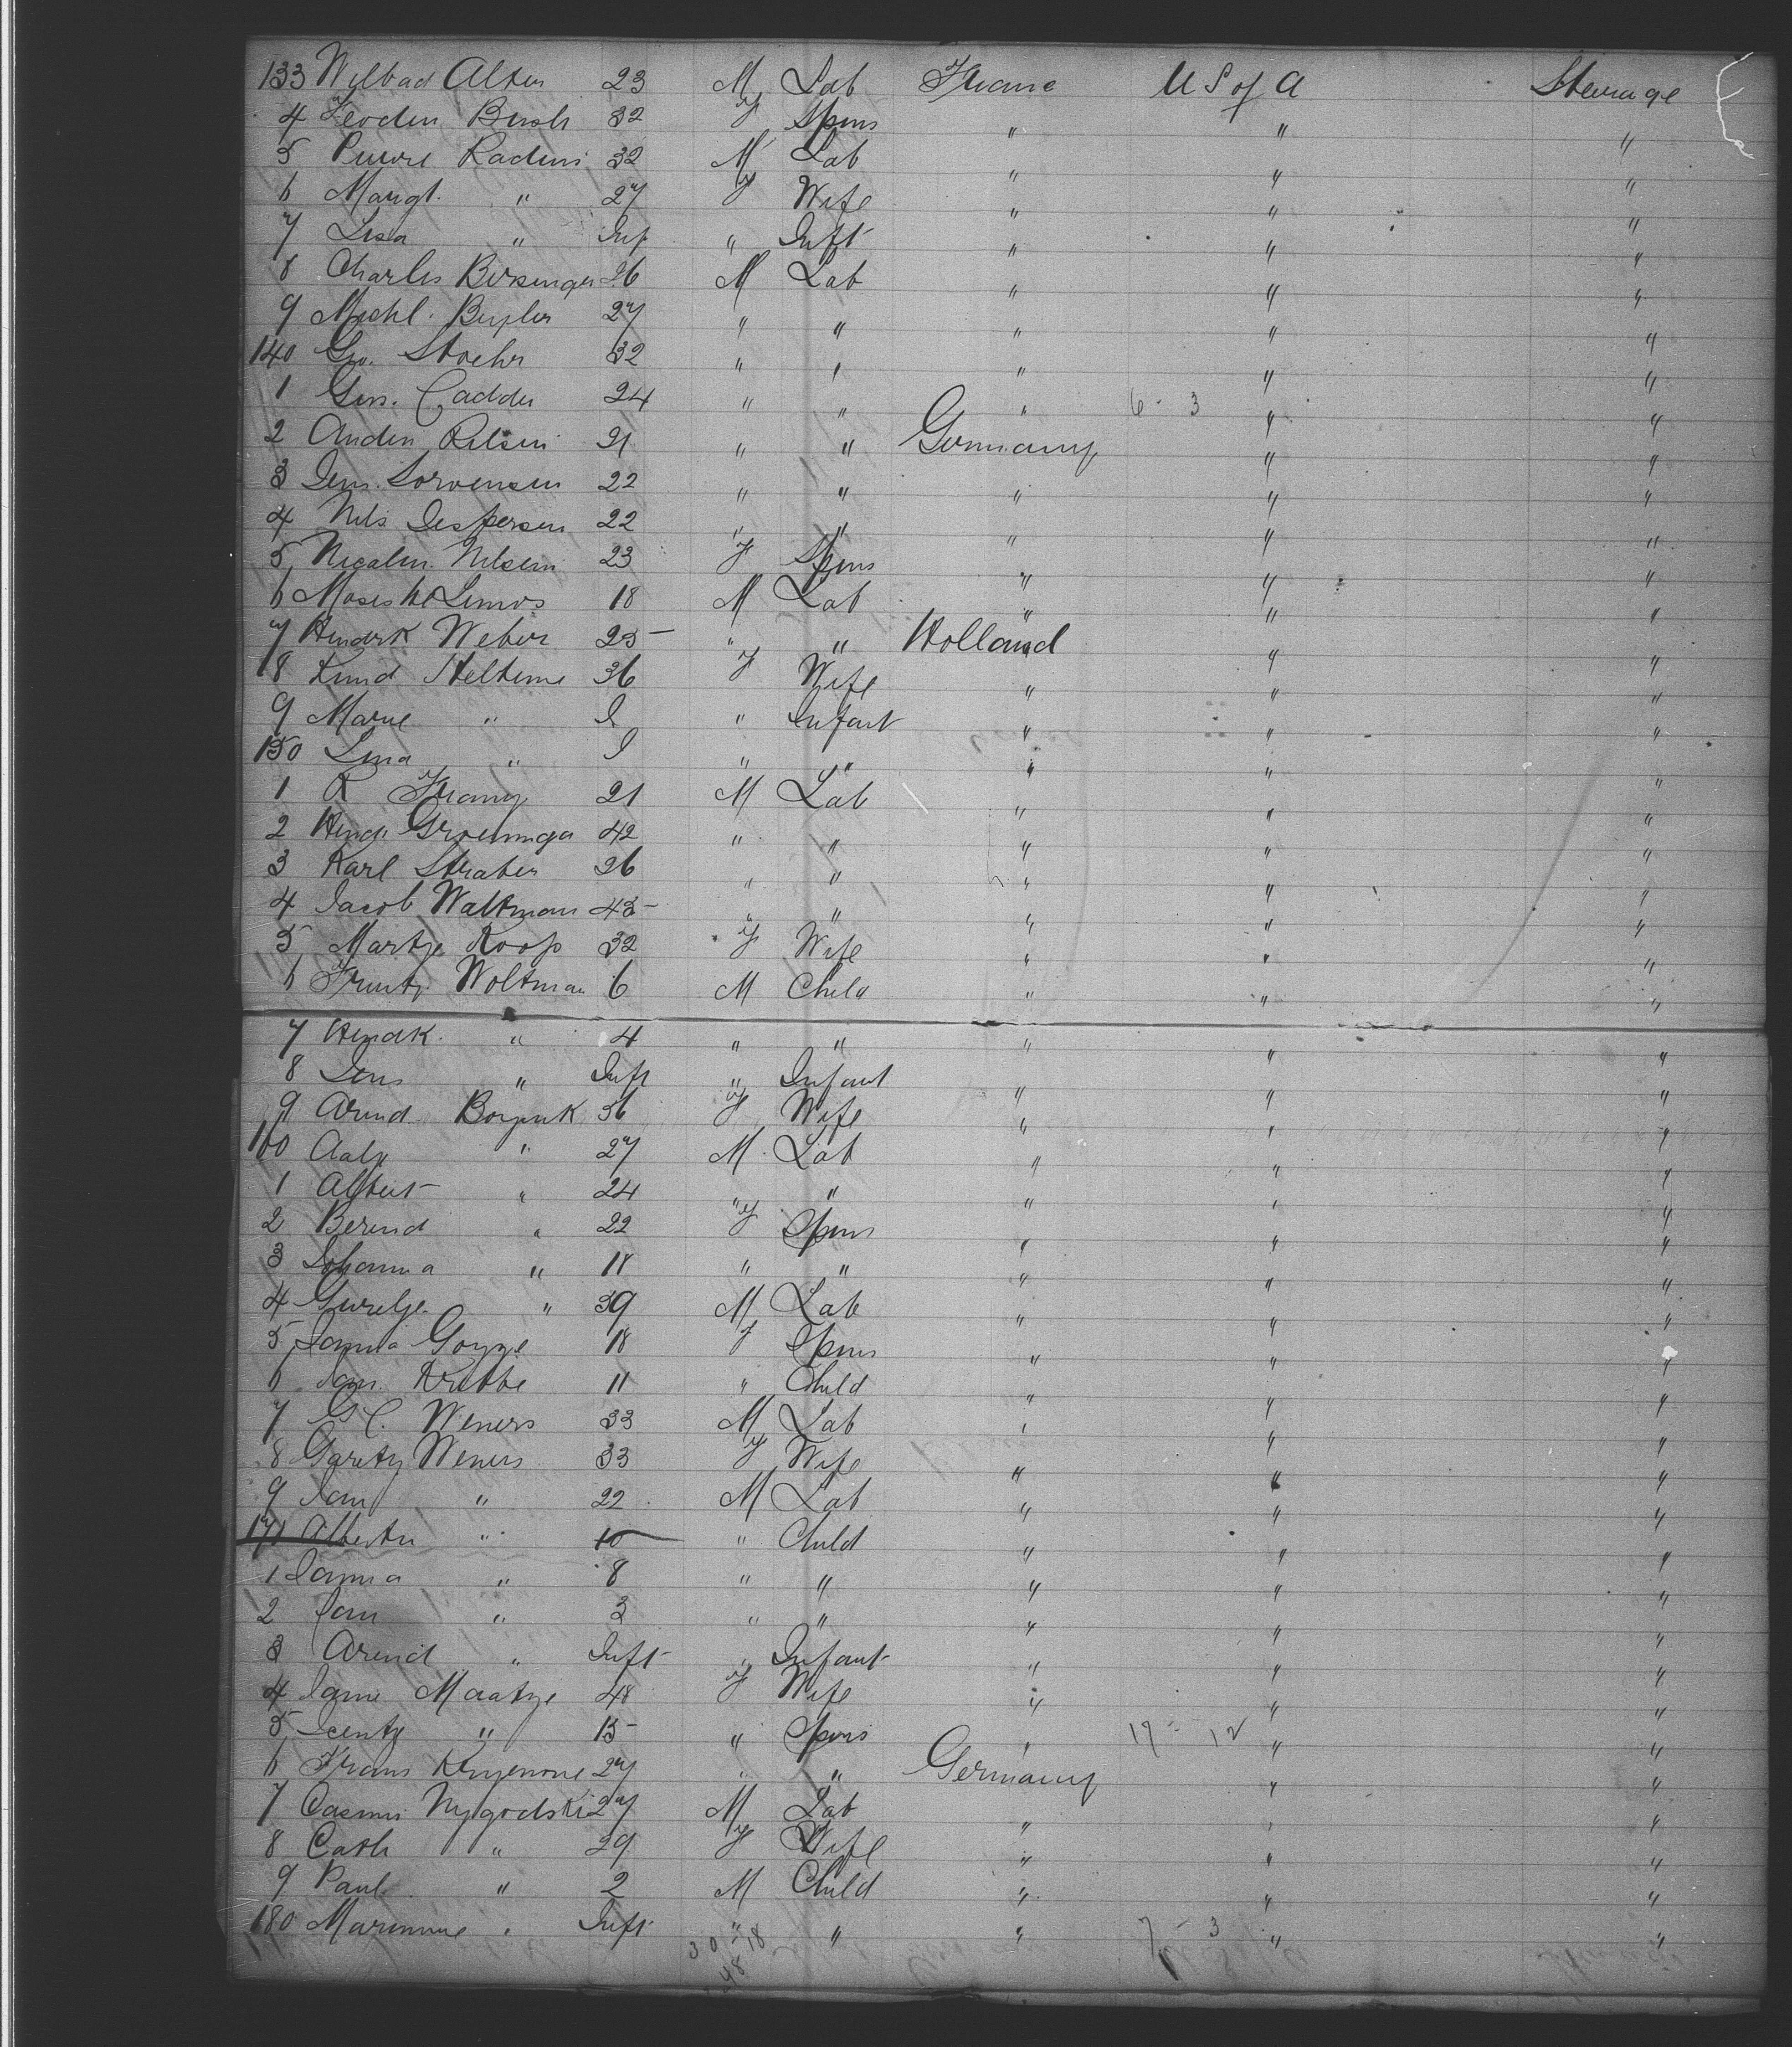 133 Wilbad Alten 23 M Lab France U S of A Steerage
4 Feoden Bush 32 F Spins " " "
5 Pierre Radeni 32 M Lab " " "
6 Margt. " 27 F Wife " " "
7 Lisa " Inf " Inft " " "
8 Charles Birsinger 26 M Lab " " "
9 Michl. Beyler 27 " " " " "
140 Geo. Stoehr 32 " " " " "
1 Gus. Cadder 24 " " " 6 - 3 " "
2 Anden Rilsen 21 " " Germany " "
3 Jens. Sorvensen 22 " " " " "
4 Nils Jespersen 22 " " " " "
5 Nicalin Nilsen 23 F Spins " " "
6 Moses de Lemos 18 M Lab " " "
7 Hendrk Weber 25 " " Holland " "
8 Kund Helteme 36 F Wife " " "
9 Marie " I " Infant " " "
150 Lina " I " " " " "
1 R Franz 21 M Lab " " "
2 Hendr Groeninga 42 " " " " "
3 Karl Straten 26 " " " " "
4 Jacob Waltman 45 " " " " "
5 Martje Koop 32 F Wife " " "
6 Woltman 6 M Child " " "
7 Hendk. " 4 " " " " "
8 Jens " Inft " Infant " " "
9 Arend 36 F Wife " " "
160 Aalz " 27 M Lab " " "
1 Albert " 24 " " " " "
2 Berend " 22 F Spins " " "
3 Johanna " 18 " " " " "
4 " 39 M Lab " " "
5 Janna 18 F Spins " " "
6 Jan. Krabbe 11 " Child " " "
7 G C. Weners 33 M Lab " " "
8 Garetz Weners 33 F Wife " " "
9 Jan " 22 M Lab " " "
171 Alberta " 10 " Child " " "
1 Janna " 8 " " " " "
2 Jan " 3 " " " " "
3 Arend " Inft " Infant " " "
4 Jane Maatze 48 F Wife " " "
5 " 15 " Spins " 17 - 12 " "
6 Frans 27 " " Germany " "
7 Casmir Nygodski 27 M Lab " " "
8 Cath " 29 F Wife " " "
9 Paul " 2 M Child " " "
180 Marianne " Inft " " " 7 - 3 " "
30 - 18
48